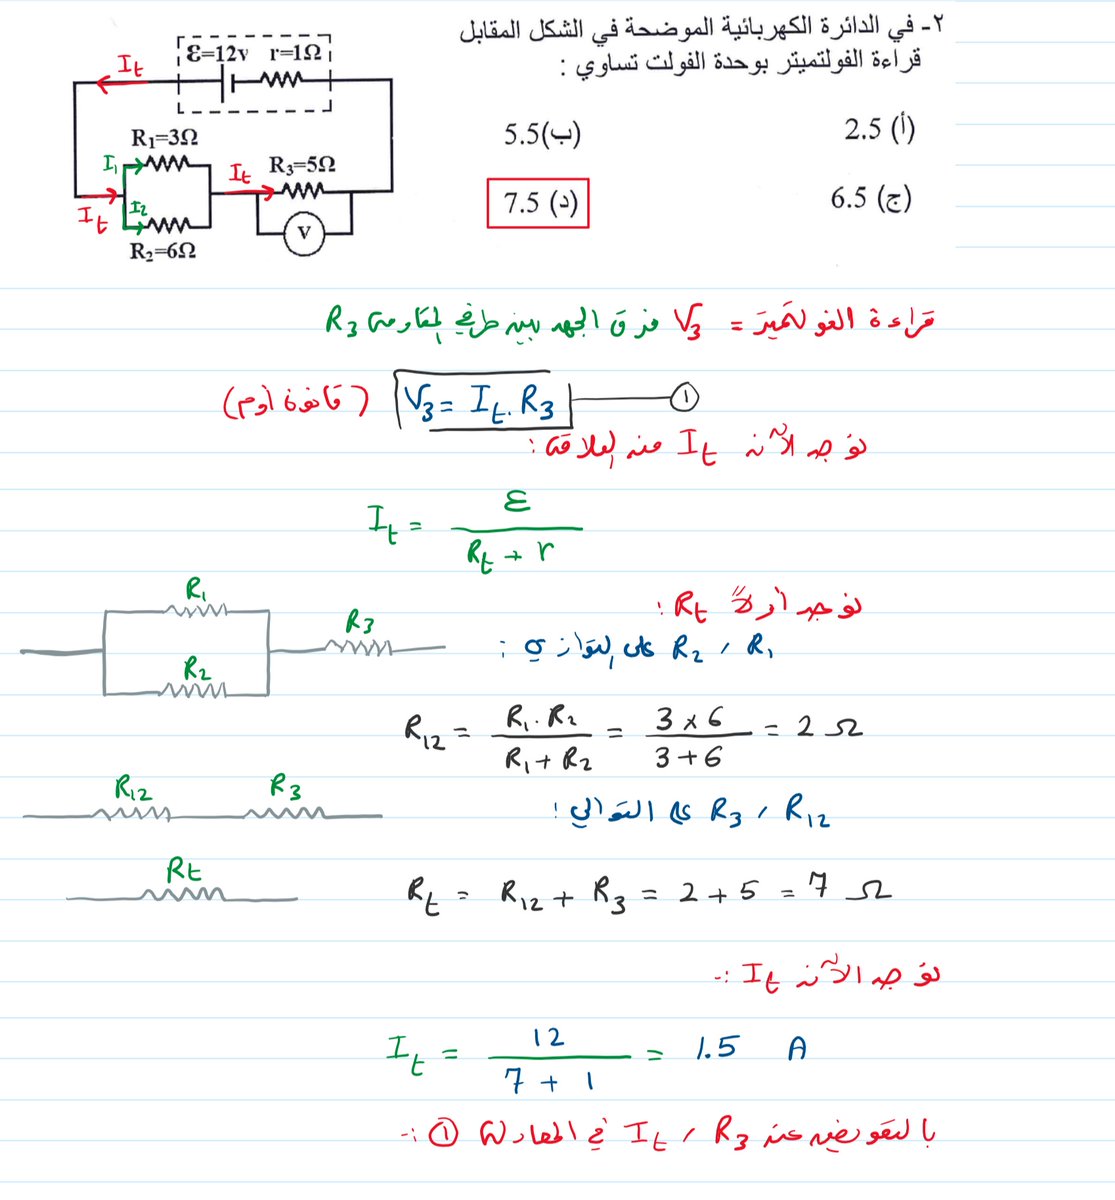 ٢- في الدائرة الكهربائية الموضحة في الشكل المقابل
قراءة الفولتميتر بوحدة الفولت تساوي :
(أ) 2.5
(ب) 5.5
(ج) 6.5
(د) 7.5
Ɛ=12v r=1Ω
It
R₁=3Ω
I₁
It R₃=5Ω
I₂
It
V
R₂=6Ω
قراءة الفولتميتر = V₃ فرق الجهد بين طرفي المقاومة R₃
V₃ = It . R₃ ① (قانون أوم)
نوجد الآن It من العلاقة :
It = Ɛ / (Rt + r)
نوجد أولاً Rt :
R₁ , R₂ على التوازي :
R₁
R₃
R₂
R₁₂ = R₁ . R₂ / (R₁ + R₂) = 3 × 6 / (3 + 6) = 2 Ω
R₁₂ R₃
R₁₂ , R₃ على التوالي :
Rt
Rt = R₁₂ + R₃ = 2 + 5 = 7 Ω
نوجد الآن It :-
It = 12 / (7 + 1) = 1.5 A
بالتعويض عن R₃ , It في المعادلة ① :-